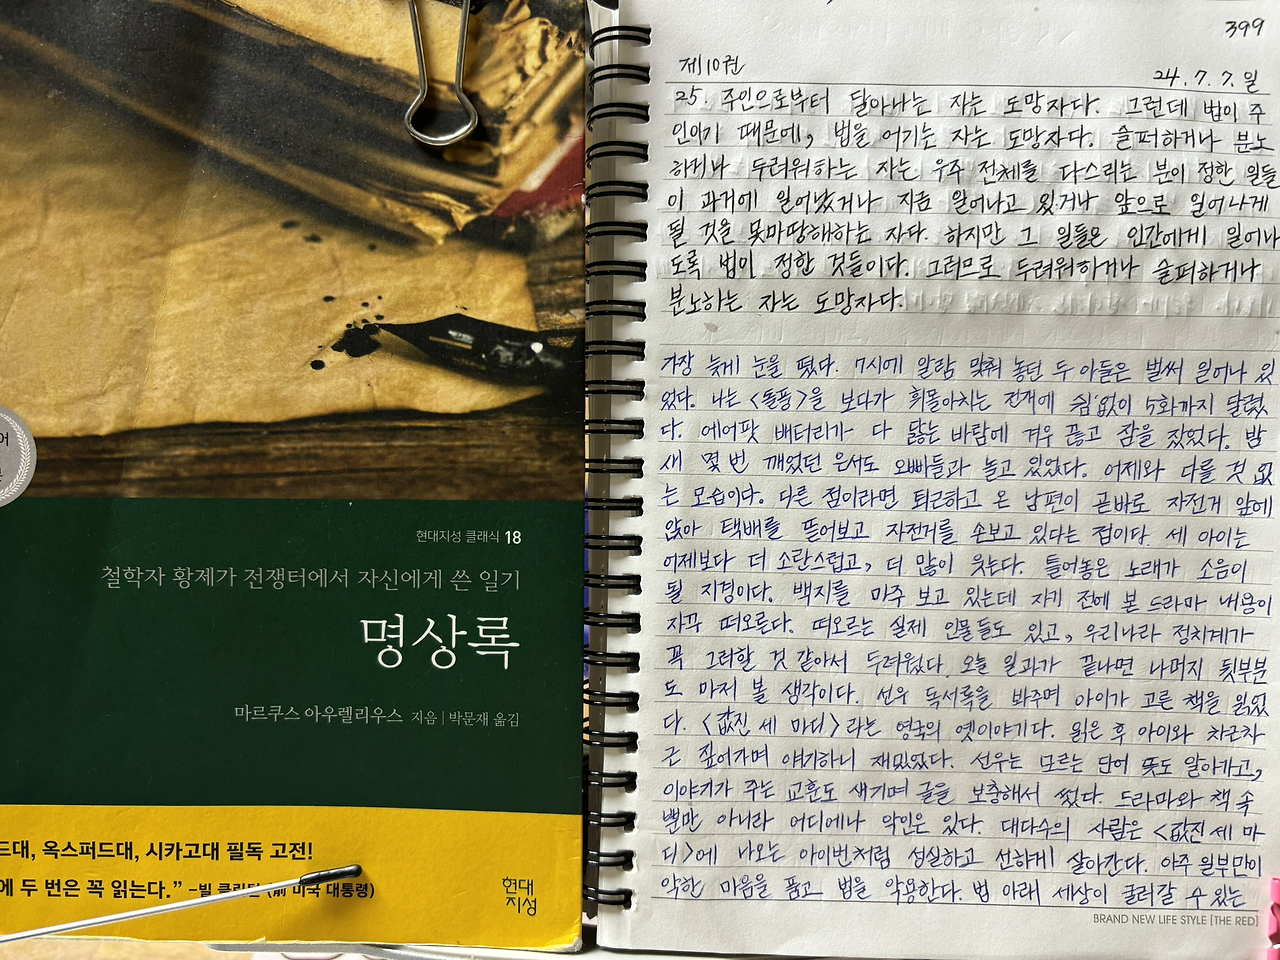 어
현대지성 클래식 18
철학자 황제가 전쟁터에서 자신에게 쓴 일기
명상록
마르쿠스 아우렐리우스 지음 | 박문재 옮김
드대, 옥스퍼드대, 시카고대 필독 고전!
에 두 번은 꼭 읽는다.” –빌 클린턴 (前 미국 대통령)
현대
지성
399
제10권
24.7.7.일
25. 주인으로부터 달아나는 자는 도망자다. 그런데 법이 주
인이기 때문에, 법을 어기는 자는 도망자다. 슬퍼하거나 분노
하거나 두려워하는 자는 우주 전체를 다스리는 분이 정한 일들
이 과거에 일어났거나 지금 일어나고 있거나 앞으로 일어나게
될 것을 못마땅해하는 자다. 하지만 그 일들은 인간에게 일어나
도록 법이 정한 것들이다. 그러므로 두려워하거나 슬퍼하거나
분노하는 자는 도망자다.
가장 늦게 눈을 떴다. 7시에 알람 맞춰 놓던 두 아들은 벌써 일어나 있
었다. 나는 <돌풍>을 보다가 휘몰아치는 전개에 쉼 없이 5화까지 달렸
다. 에어팟 배터리가 다 닳는 바람에 겨우 끊고 잠을 잤었다. 밤
새 몇 번 깨었던 은서도 오빠들과 놀고 있었다. 어제와 다를 것 없
는 모습이다. 다른 점이라면 퇴근하고 온 남편이 곧바로 자전거 앞에
앉아 택배를 뜯어보고 자전거를 손보고 있다는 점이다. 세 아이는
어제보다 더 소란스럽고, 더 많이 웃는다. 틀어놓은 노래가 소음이
될 지경이다. 백지를 마주 보고 있는데 자기 전에 본 드라마 내용이
자꾸 떠오른다. 떠오르는 실제 인물들도 있고, 우리나라 정치계가
꼭 그러할 것 같아서 두려웠다. 오늘 일과가 끝나면 나머지 뒷부분
도 마저 볼 생각이다. 선우 독서록을 봐주며 아이가 고른 책을 읽었
다. <값진 세 마디>라는 영국의 옛이야기다. 읽은 후 아이와 차근차
근 짚어가며 얘기하니 재밌었다. 선우는 모르는 단어 뜻도 알아가고,
이야기가 주는 교훈도 새기며 글을 보충해서 썼다. 드라마와 책 속
뿐만 아니라 어디에나 악인은 있다. 대다수의 사람은 <값진 세 마
디>에 나오는 아이번처럼 성실하고 선하게 살아간다. 아주 일부만이
악한 마음을 품고 법을 악용한다. 법 아래 세상이 굴러갈 수 있는
BRAND NEW LIFE STYLE [THE RED]